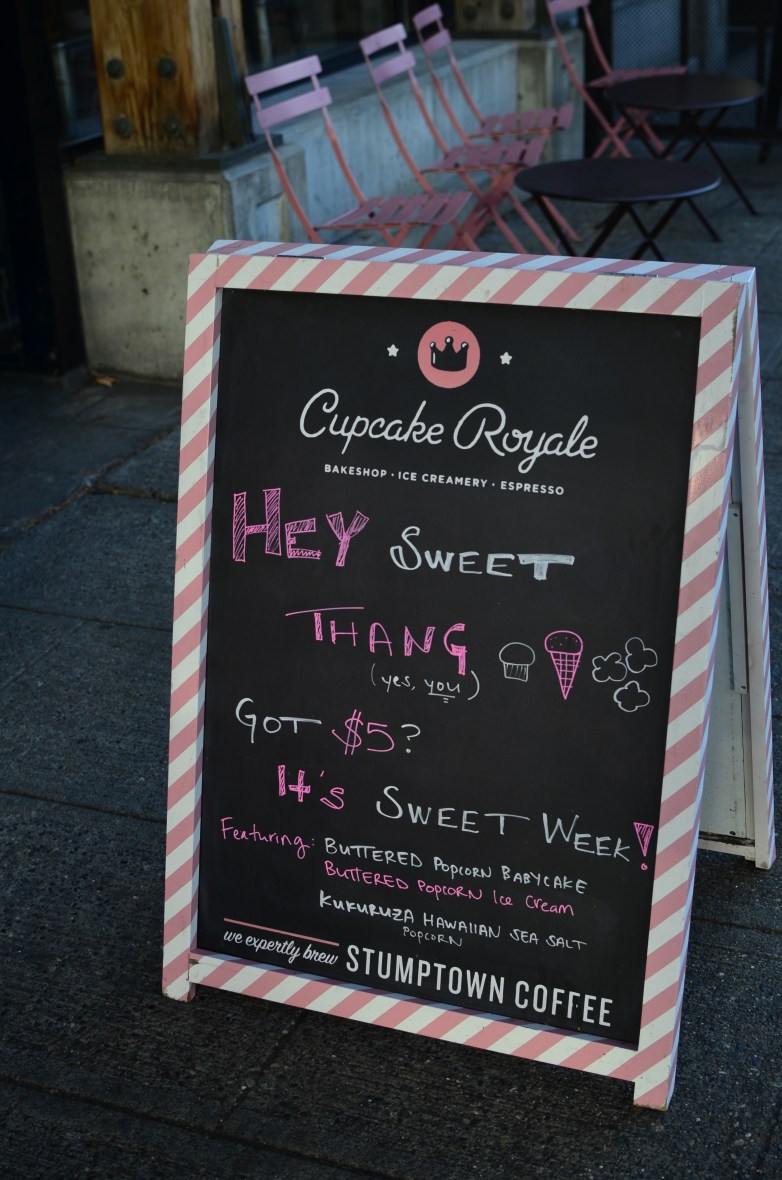 Cupcake Royale
BAKESHOP · ICE CREAMERY · ESPRESSO
HEY SWEET
THANG
(yes, you)
GOT $5?
It's SWEET WEEK!
Featuring: BUTTERED POPCORN BABYCAKE
BUTTERED POPCORN Ice Cream
KUKURUZA HAWAIIAN SEA SALT
POPCORN
we expertly brew STUMPTOWN COFFEE